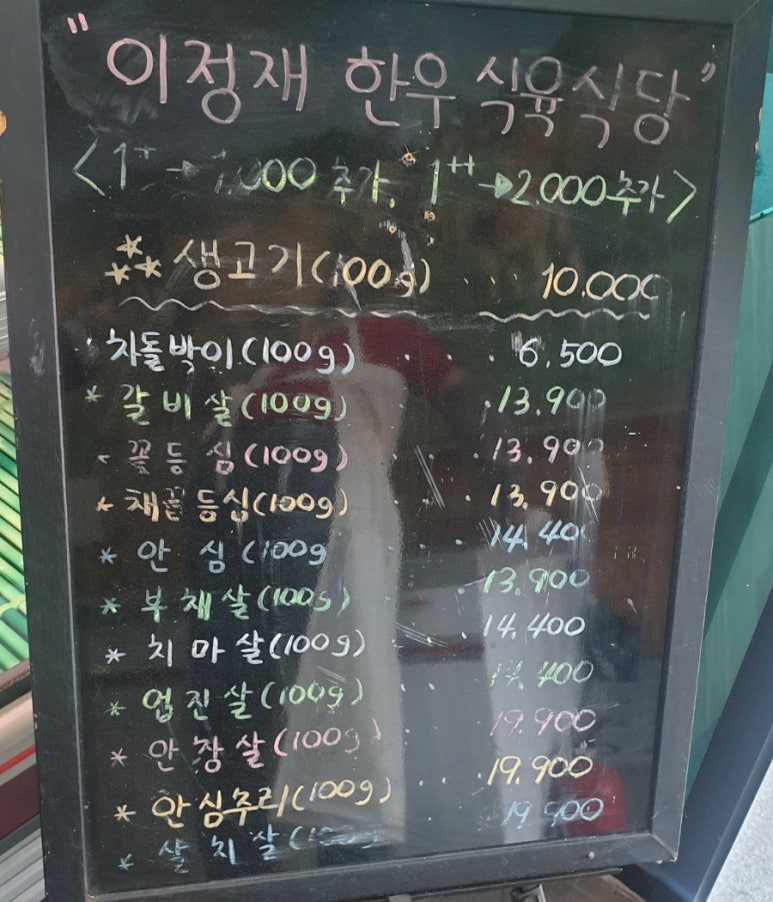 "이정재 한우 식육식당"
<1+ → 1.000 추가, 1++ → 2.000 추가>
*** 생고기(100g) . . . 10.000
· 차돌박이(100g) . . . 6,500
* 갈비살(100g) . . 13.900
* 꽃등심(100g) . . 13.900
* 채끝등심(100g) . . 13,900
* 안심(100g 14.400
* 부채살(100g) . . 13.900
* 치마살(100g) . . 14.400
* 업진살(100g) . . 14.400
* 안창살(100g) . . 19.900
* 안심추리(100g) . . 19.900
* 살치살(100g 19.900